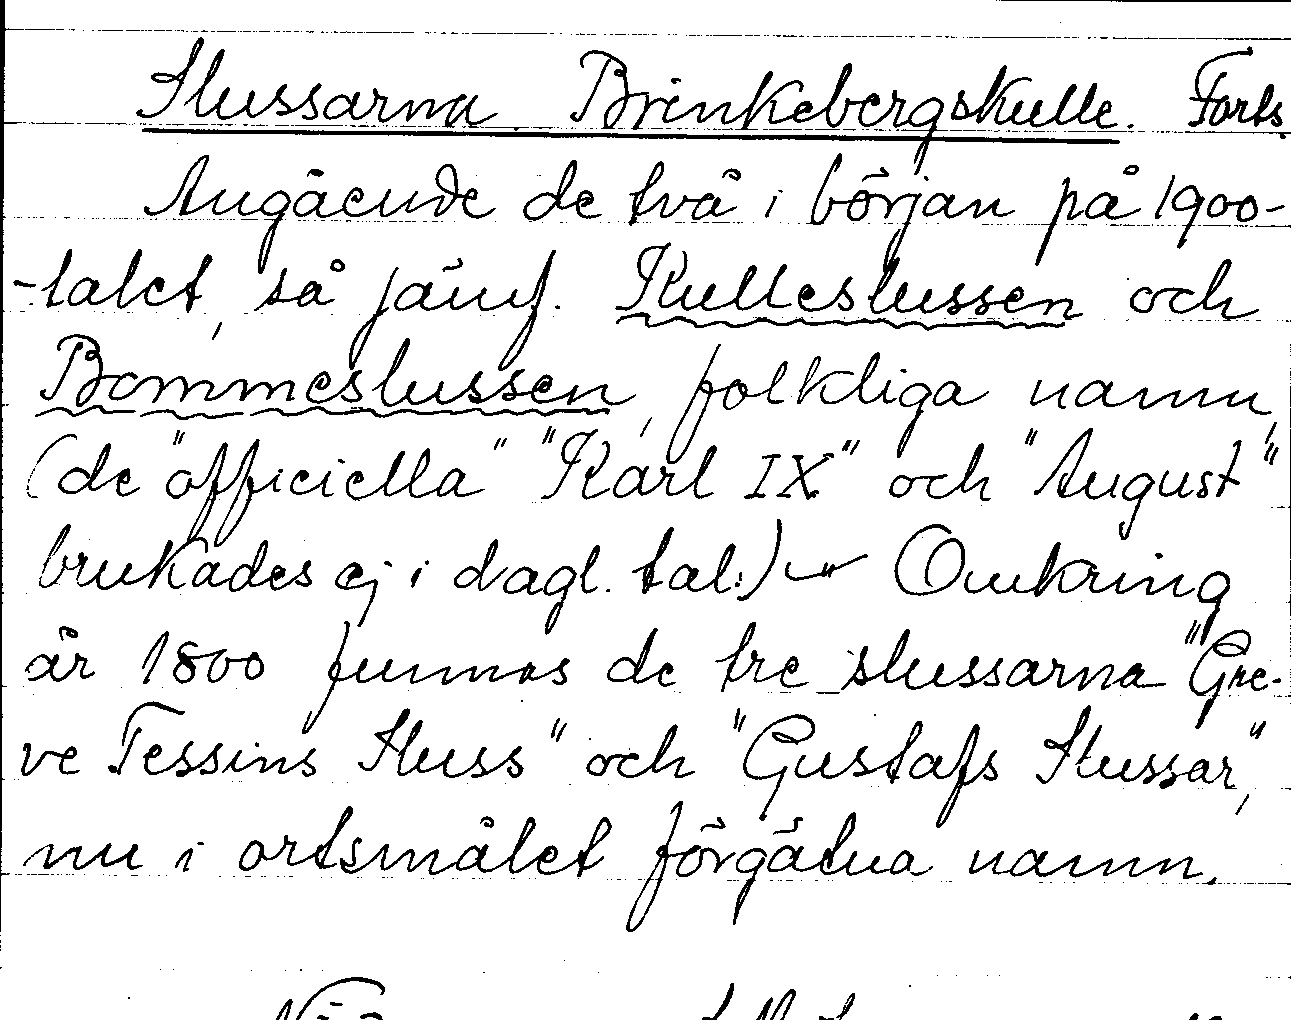 Slussarna Brinkebergskulle. Forts.
Angående de två i början på 1900-
-talet, så jämf. Kulleslussen och
Bommeslussen, folkliga namn,
(de "officiella" "Karl IX" och "August"
brukades ej i dagl. tal.) — Omkring
år 1800 funnos de tre slussarna "Gre-
ve Tessins Sluss" och "Gustafs Slussar",
nu i ortsmålet förgätna namn.